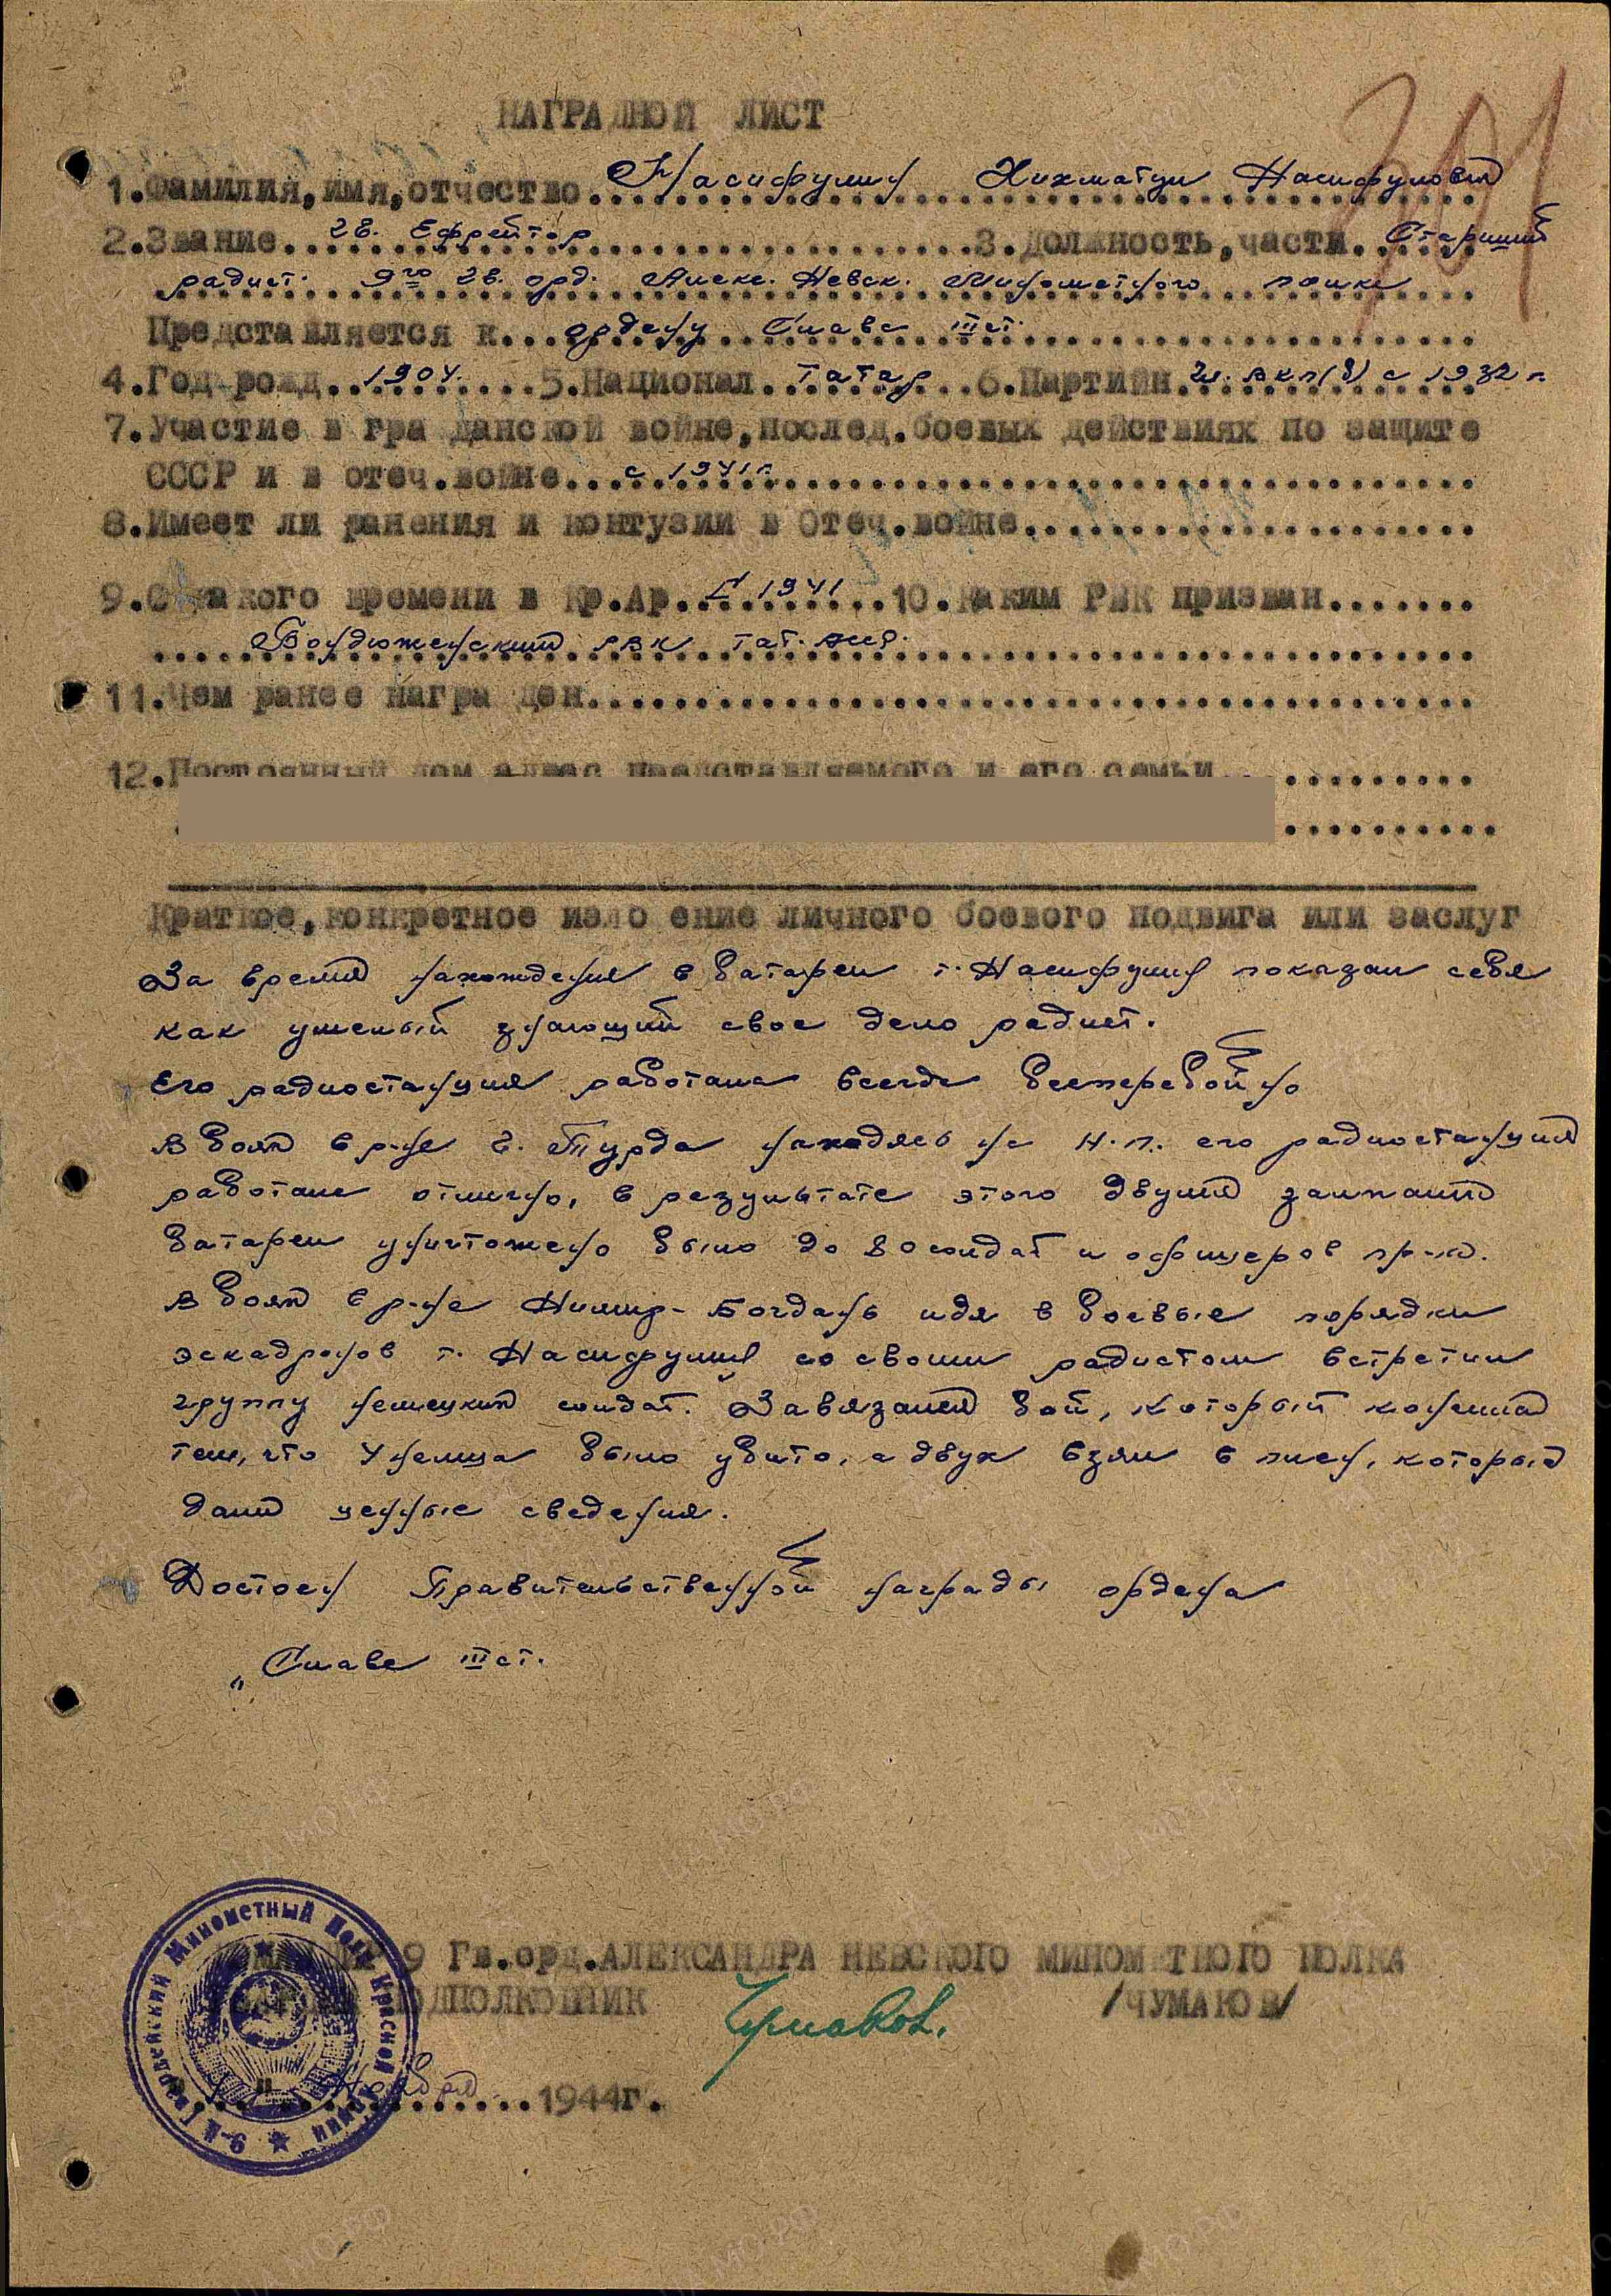 НАГРАДНОЙ ЛИСТ
1.Фамилия,имя,отчество Насифулин Хихматул Насифулович
2.Звание гв. Ефрейтор 3.Должность,части Старший
радист 9го гв. орд. Алекс. Невск. Минометного полка
Представляется к ордену Слава III ст.
4.Год рожд. 1904. 5.Национал. татар 6.Партийн. чл. ВКП(б) с 1932 г.
7.Участие в гражданской войне,послед.боевых действиях по защите
СССР и в отеч.войне с 1941 г.
8.Имеет ли ранения и контузии в Отеч.войне
9.С какого времени в Кр.Ар. с 1941 10.Каким РВК призван
Бондюженским РВК Тат. АССР.
11.Чем ранее награжден
12.Постоянный дом.адрес представляемого и его семьи
Краткое,конкретное изло ение личного боевого подвига или заслуг
За время нахождения в батареи т. Насифулин показал себя
как умелый знающий свое дело радист.
Его радиостанция работала всегда бесперебойно
В боях в р-не г. Турда находясь на Н.П. его радиостанция
работала отлично, в результате этого двумя залпами
батареи уничтожено было до 80 солдат и офицеров пр-ка.
В боях в р-не Нимир-Богдань идя в боевые порядки
эскадронов т. Насифулин со своим радистом встретил
группу немецких солдат. Завязался бой, который кончился
тем, что 4 немца было убито, а двух взяли в плен, которые
дали ценные сведения.
Достоен Правительственной награды ордена
„Слава III ст.
9 Гв.орд.АЛЕКСАНДРА НЕВСКОГО МИНОМ ТНОГО ПОЛКА
ПОДПОЛКОВНИК Чумаков. /ЧУМАКОВ/
Ноября 1944г.
9-й Гвардейский Минометный Полк Красной Армии
301
ЦА МО РФ